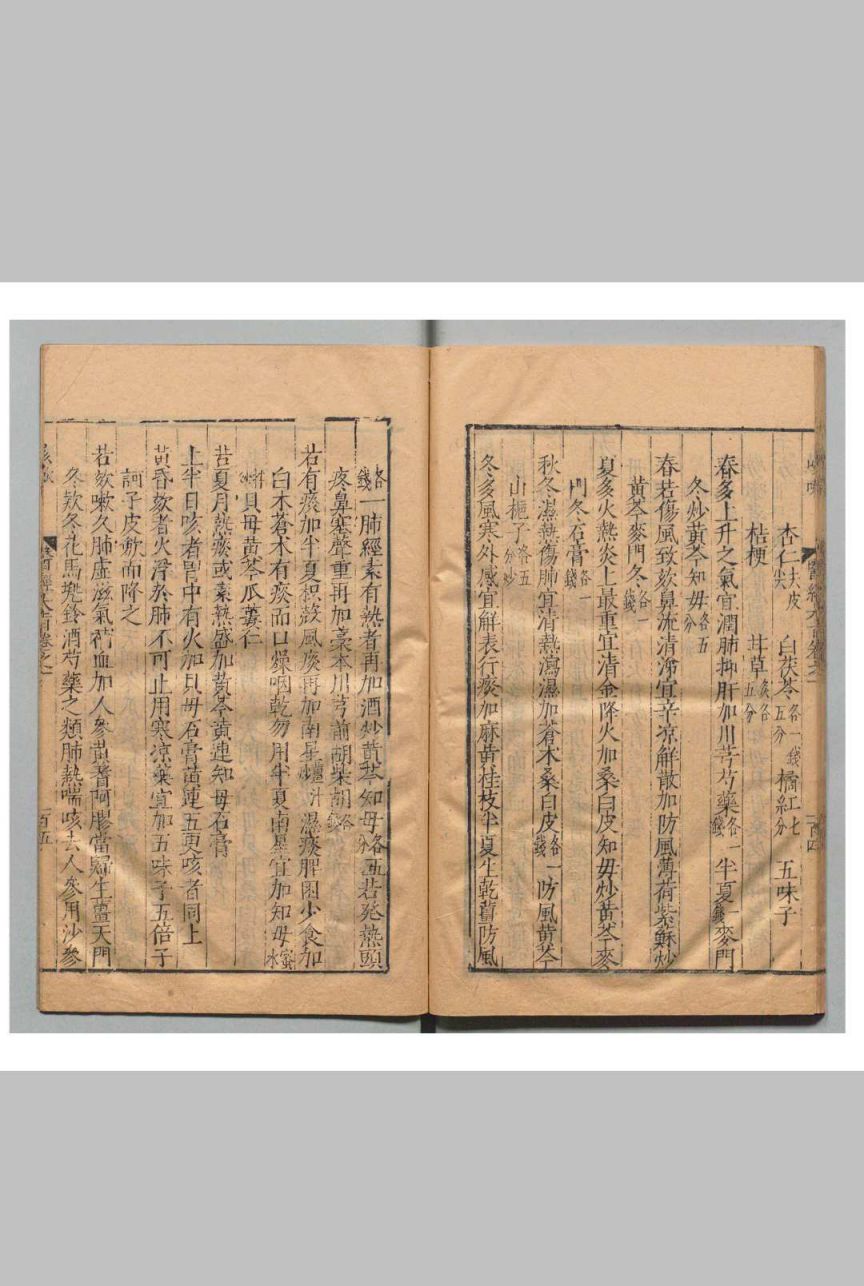 杏仁去皮尖 白茯苓各一錢五分 橘紅七分 五味子
桔梗 甘草炙各五分
春多上升之氣宜潤肺抑肝加川芎芍藥各一錢半夏一錢麥門
冬炒黃芩知母各五分
春若傷風致欬鼻流清涕宜辛凉解散加防風薄荷紫蘇炒
黃芩麥門冬各一錢
夏多火熱炎上最重宜清金降火加桑白皮知母炒黃芩麥
門冬石膏各一錢
秋冬濕熱傷肺宜清熱瀉濕加蒼术桑白皮各一錢防風黃芩
山梔子炒各五分
冬多風寒外感宜解表行痰加麻黃桂枝半夏生乾薑防風
各一錢肺經素有熱者再加酒炒黃芩知母各五分若發熱頭
疼鼻塞聲重再加藁本川芎前胡柴胡各一錢
若有痰加半夏枳殼風痰再加南星薑汁濕痰脾困少食加
白术蒼术有痰而口燥咽乾勿用半夏南星宜加知母蜜水
拌炒貝母黃芩瓜蔞仁
若夏月熱痰或素熱盛加黃芩黃連知母石膏
上半日咳者胃中有火加貝母石膏黃連五更咳者同上
黃昏欬者火浮於肺不可止用寒凉藥宜加五味子五倍子
訶子皮歛而降之
若欬嗽久肺虛滋氣補血加人參黃耆阿膠當歸生薑天門
冬欵冬花馬兜鈴酒芍藥之類肺熱喘咳去人參用沙參
一百五